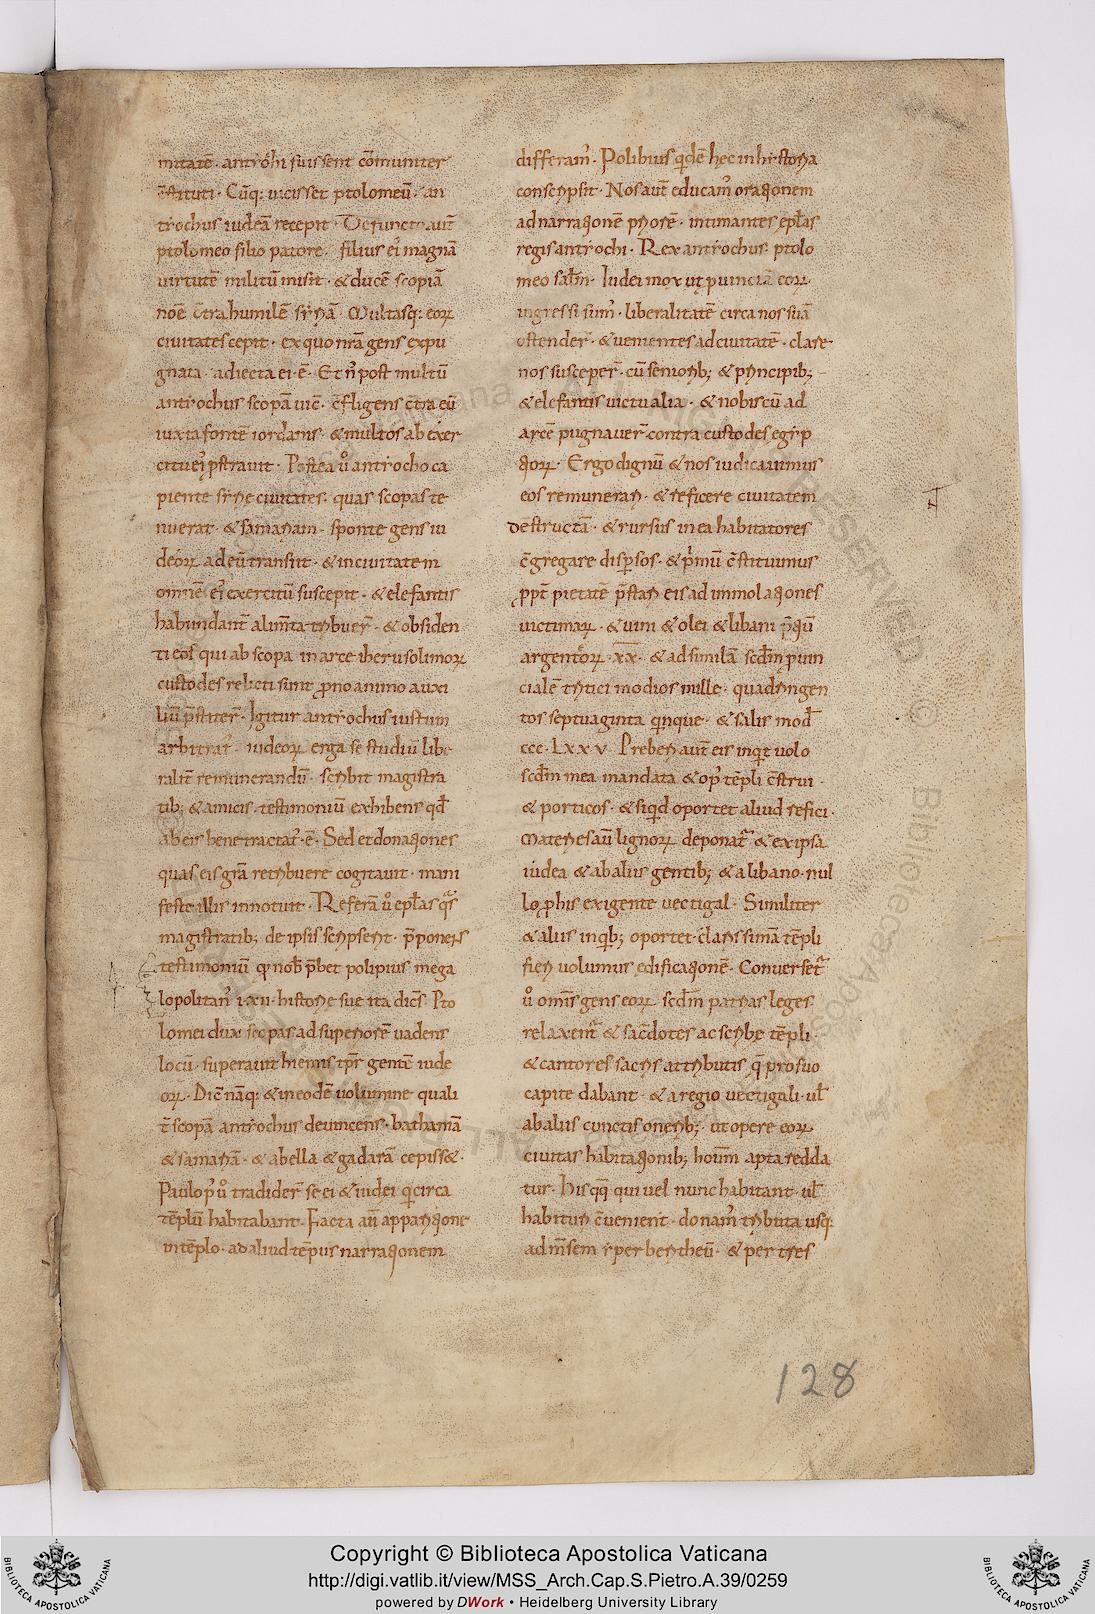 mitatē · antiohi suissent cōmuniter
c̄stituti · Cūq; uicisset ptolomeū · an
tiochus iudeā recepit · Defuncto aut̄
ptolomeo filio patore · filius ei magnā
uirtutē militū misit · & ducē scopiā
noē c̄tra humilē syriā · Multasq; eorꝝ
ciuitates cepit · ex quo nr̄a gens expu
gnata · adiecta ei · ē · Et n̄ post multū
antiochus scopā uic̄ · c̄fligens c̄tra eū
iuxta fontē iordanis · & multos ab exer
citu ei pstrauit · Postea ů antiocho ca
piente syrie ciuitates · quas scopas te
nuerat · & samariam · sponte gens iu
deorꝝ ad eū transiit · & in ciuitatem
omnē ei exercitū suscepit · & elefantis
habundant̄ alim̄ta tribuer̄ · & obsiden
ti eos qui ab scopa in arce iherusolimorꝝ
custodes relicti sunt prono animo auxi
liū p̄stiter̄ · Igitur antiochus iustum
arbitrat᷒ · iudeorꝝ erga se studiū libe
ralit̄ remunerandū · scribit magistra
tib; & amicis · testimoniū exhibens qd̄
ab eis bene tractat᷒ · ē · Sed et donationes
quas eis gr̄a retribuere cogitauit · mani
feste illis innotuit · Referā ů epl̄as q̄s
magistratib; de ipsis scripsent · p̄ponens
testimoniū qp nob̄ p̄bet polipius mega
lopolitan᷒ i · xii · historie sue ita dicīs · Pto
lomei dux scopas ad superiorē uadens
locū · superauit hiemis tp̄r gentē iude
orꝝ · Dic̄ nāq; & in eodē uolumine quali
t̄ scopā antiochus deuincens · bathaniā
& samariā · & abella & gadarā cepiss& ·
Paulo p᷒ ů tradider̄ se ei & iudei q̄ circa
tēplū habitabant · Facta aū apparitione
in tēplo · ad aliud tēpus narrationem
differam᷒ · Polibius qidē hec in historia
conscripsit · Nos aut̄ educam᷒ orationem
ad narrationē priorē · intimantes epl̄as
regis antiochi · Rex antiochus · ptolo
meo salt̄m · Iudei mox ut puinciā eorꝝ
ingressi sum᷒ · liberalitatē circa nos suā
ostender̄ · & uenientes ad ciuitatē · clare
nos susceper̄ · cū seniorib; & principib;
& elefantis uictualia · & nobiscū ad
arcē pugnauer̄ contra custodes egip
tiorꝝ · Ergo dignū & nos iudicauimus
eos remunerari · & reficere ciuitatem
destructā · & rursus in ea habitatores
c̄gregare dispersos · & p̄mū c̄stituimus
ppt̄ pietatē p̄stari eis ad immolationes
uictimarꝝ · & uini & olei & libani p̄tiū
argentorꝝ · xx · & ad similā scdm̄ puin
cialē tritici modios mille · quadringen
tos septuaginta quinque · & salis mod̄
ccc · Lxxv · Preberi aut̄ eis inqit uolo
scdm̄ mea mandata & op᷒ tēpli c̄strui ·
& porticos · & siqd oportet aliud refici ·
Materies aū lignorꝝ deponat᷒ & ex ipsa
iudea & ab aliis gentib; & a libano · nul
lo p his exigente uectigal · Similiter
& aliis in qib; oportet · clarissimā tēpli
fieri uolumus edificationē · Conuerset᷒
ů omīs gens eorꝝ scdm̄ patrias leges
relaxent᷒ & sac̄dotes ac scribe tēpli ·
& cantores sacris attributis q̄ pro suo
capite dabant · & a regio uectigali · ul̄
ab aliis cunctis onerib; · ut opere eorꝝ
ciuitas habitationib; hoiūm apta redda
tur · hisqq̄ qui uel nunc habitant · ul̄
habituri c̄uenient · donam᷒ tributa usq;
ad mēsem yperbertheū · & per tres
128
Copyright © Biblioteca Apostolica Vaticana
http://digi.vatlib.it/view/MSS_Arch.Cap.S.Pietro.A.39/0259
powered by DWork • Heidelberg University Library